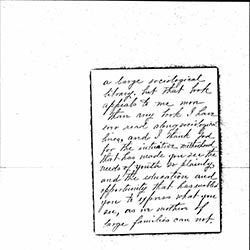 a large sociological
library, but that book
appeals to me more
than any book I have
ever read along sociological
lines and I thank God
for the initiative motherhood
that has made you see the
needs of youth so plainly
and the education and
opportunity that has enabled
you to express what you
see, as us mothers of
large families can not